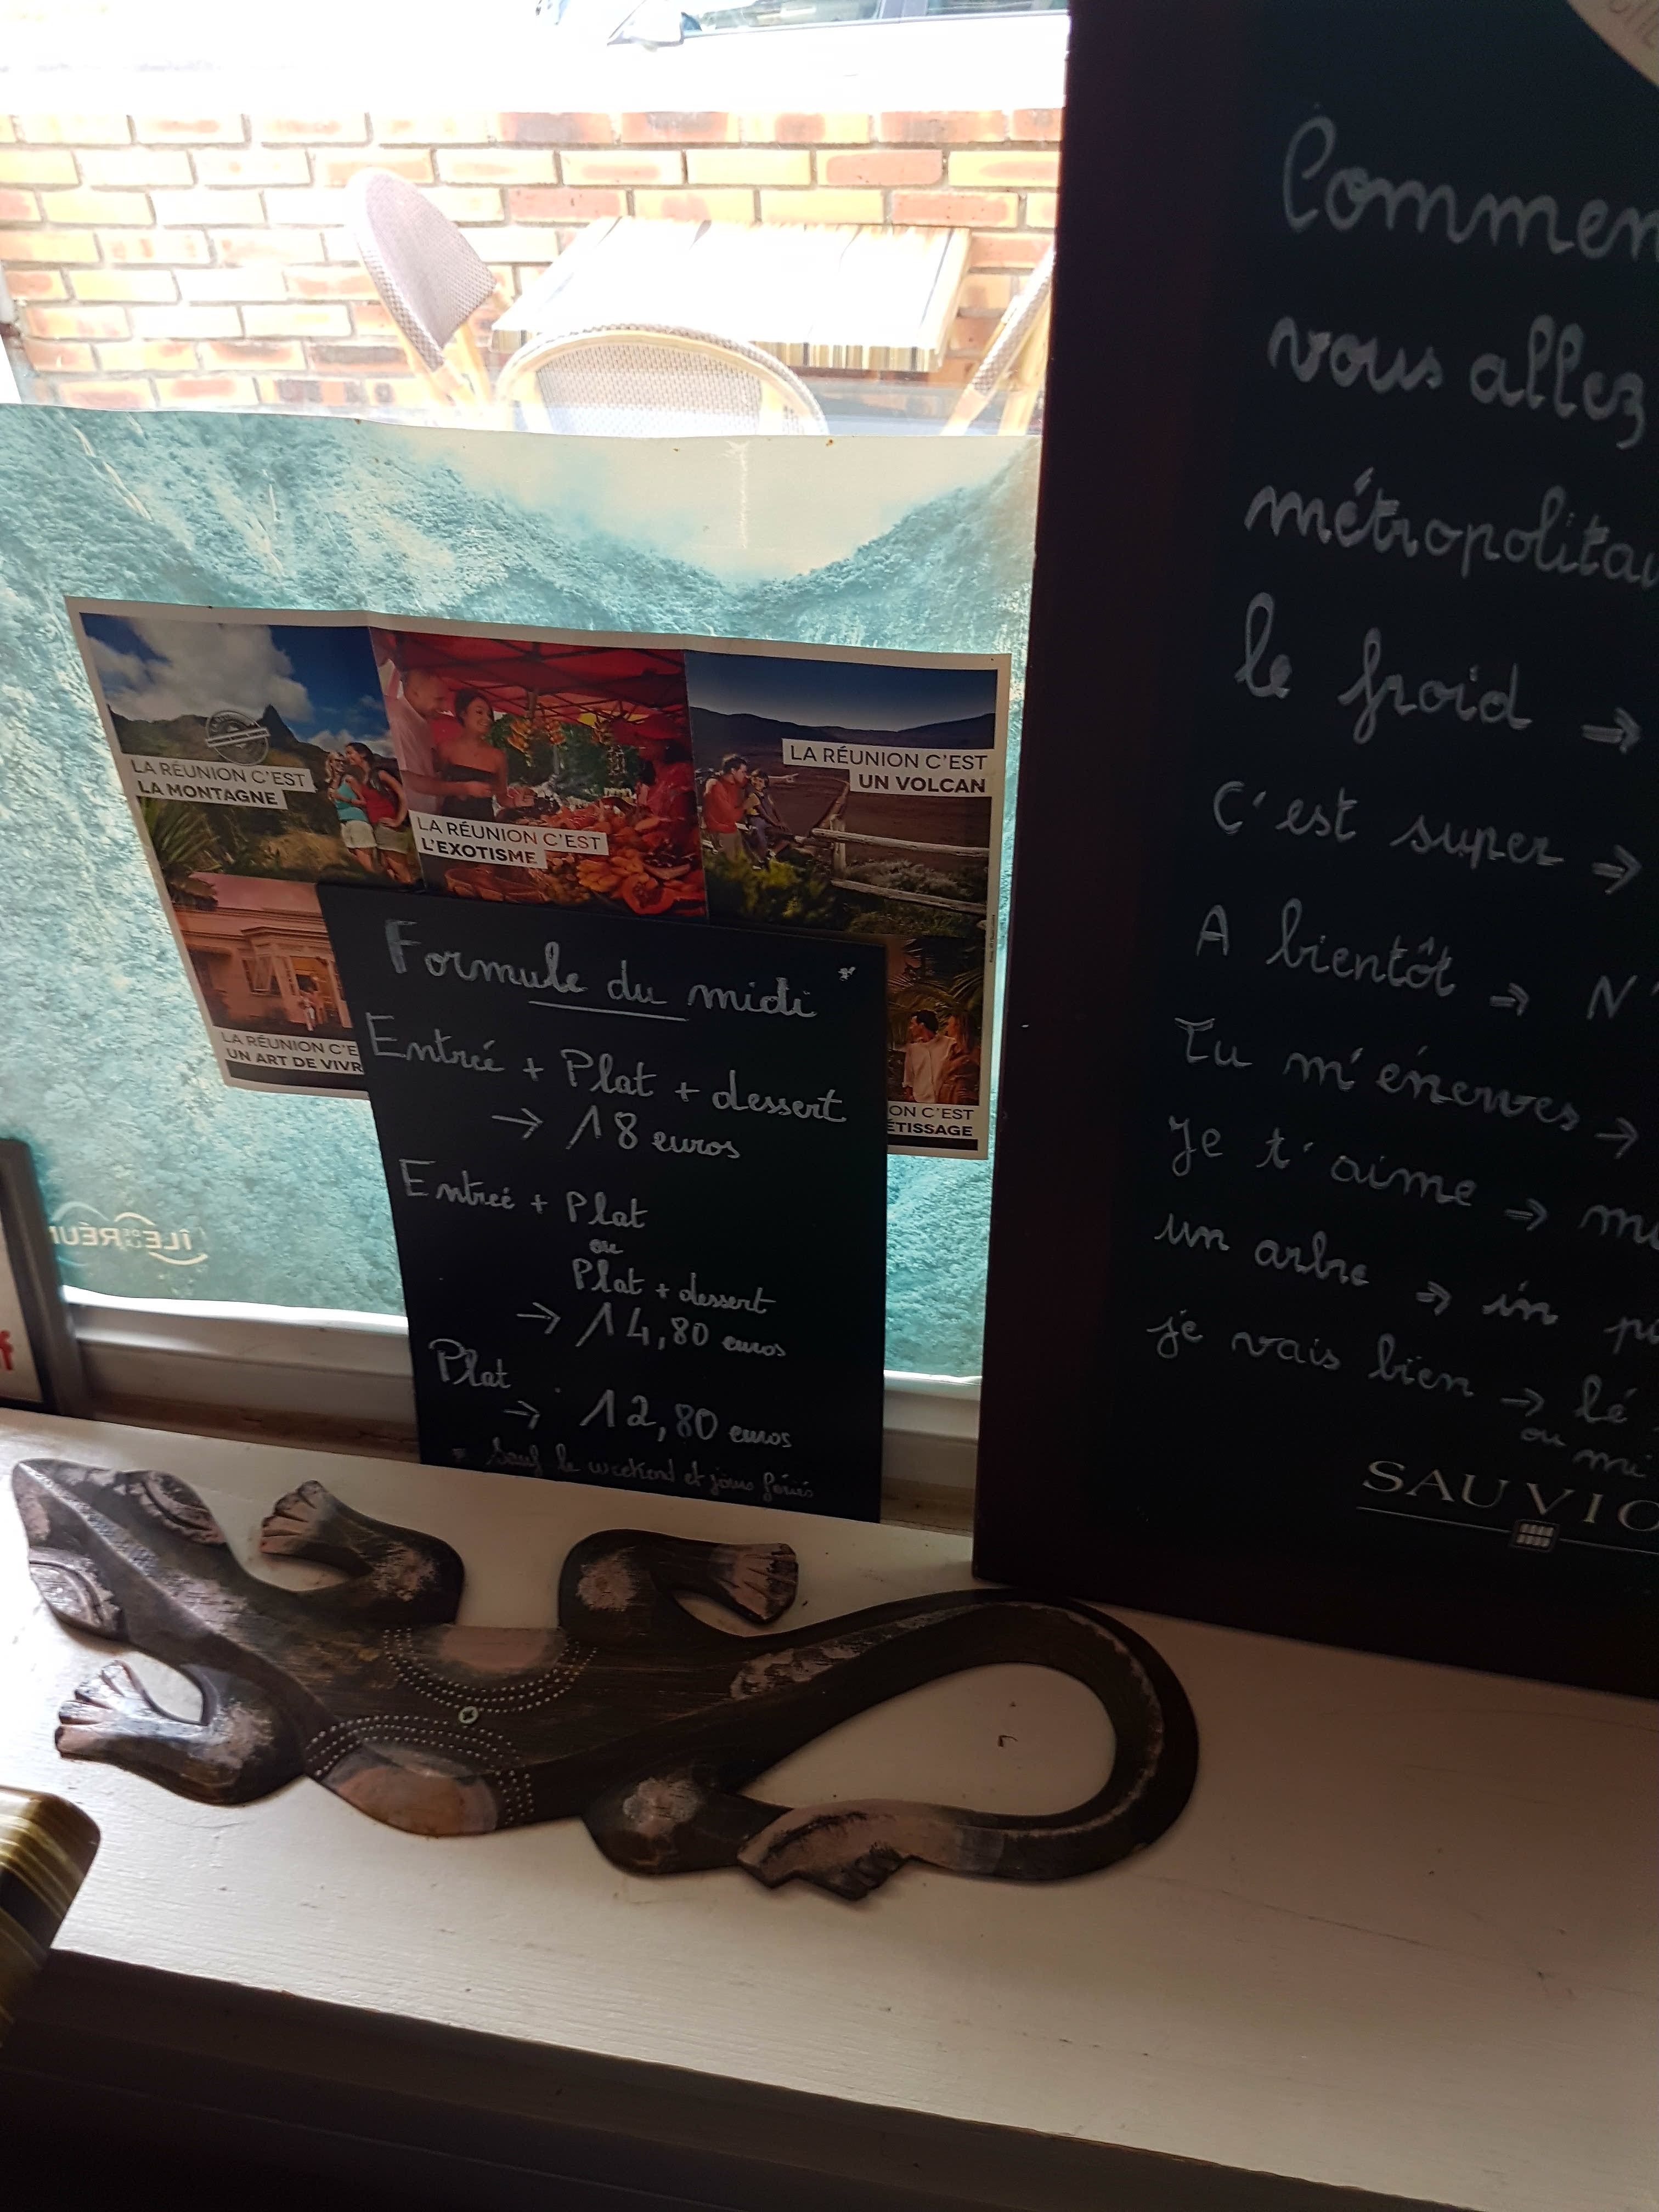 LA RÉUNION C'EST
LA MONTAGNE
LA RÉUNION C'EST
L'EXOTISME
LA RÉUNION C'EST
UN VOLCAN
LA RÉUNION C'E
UN ART DE VIVR
ON C'EST
ÉTISSAGE
ÎLE DE LA RÉUN
Formule du midi *
Entrée + Plat + dessert
→ 18 euros
Entrée + Plat
ou
Plat + dessert
→ 14,80 euros
Plat
→ 12,80 euros
* Sauf le weekend et jours fériés
Commen
vous allez
métropolitai
le froid ⇒
C'est super ⇒
A bientôt ⇒ N'
Tu m'énerves →
Je t'aime ⇒ m
un arbre ⇒ in p
je vais bien → lé
ou mi
SAUVIO